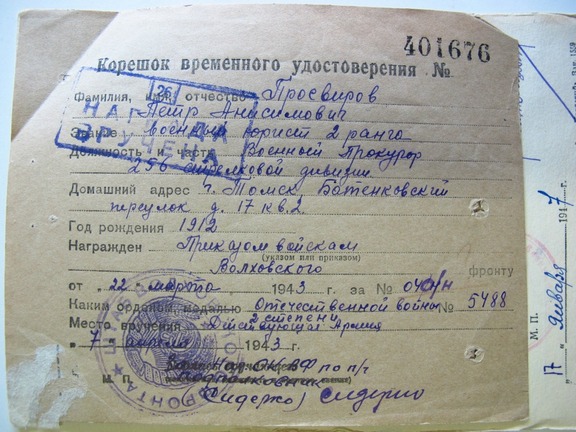 401676
Корешок временного удостоверения №
Фамилия, имя, отчество Просвиров
Петр Анисимович
26
НАГРАДА
ВРУЧЕНА
Звание военный юрист 2 ранга
Должность и часть Военный Прокурор
256 стрелковой дивизии
Домашний адрес г. Томск Батенковский
переулок д. 17 кв. 2
Год рождения 1912
Награжден Приказом войскам
(указом или приказом)
Волховского фронту
от „22" марта 1943 г. за № 04/н
Каким орденом, медалью Отечественной войны № 5488
2 степени
Место вручения Действующая Армия
„7" апреля 1943 г.
М. П. Подполковник
(Сидерко) Сидерко
ФРОНТА
М. П.
17 Января 1947